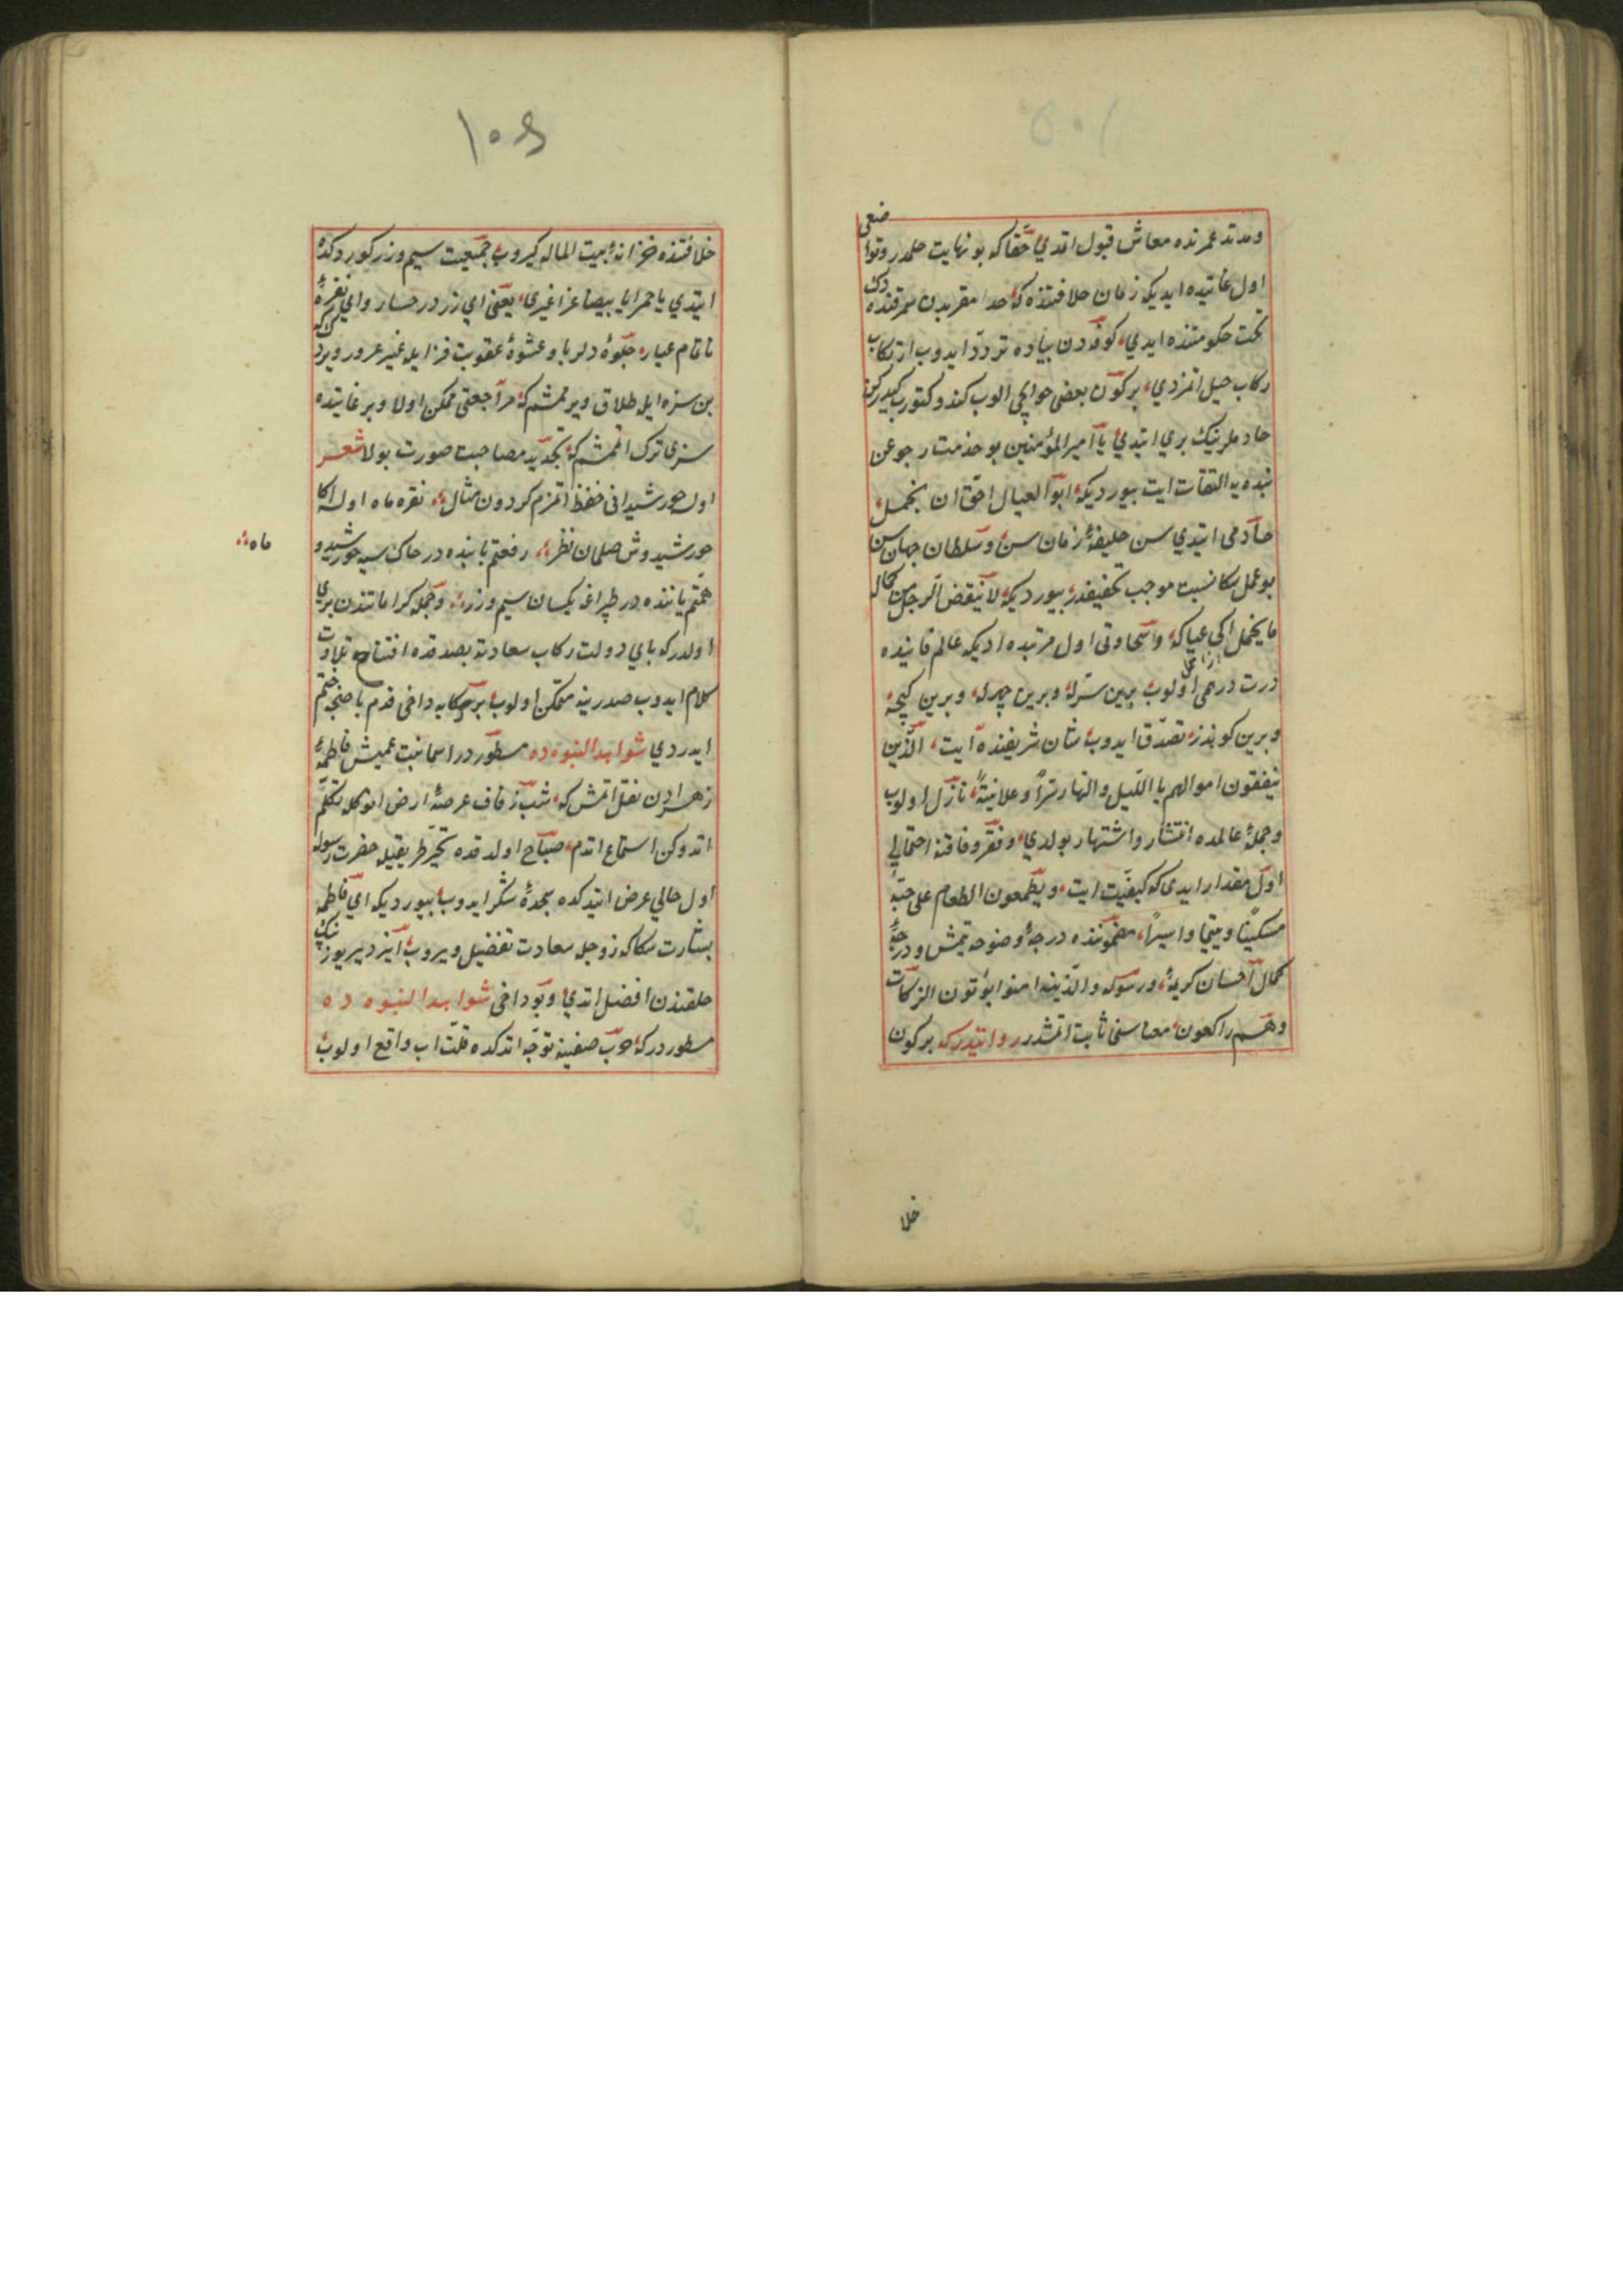 ومدتد عمرنده معاش قبول اتدي حقا که بو نهایت حلمدر وتواضعی
اول غایتده ایدیکه زمان خلافتنده که حد مقربدن سمرقنده دک
تخت حکومتنده ایدي کوفه دن پیاده تردد ایدوب ارتکاب
رکاب خیل اتمزدي برکون بعضی حوایجی الوب کندو کتورب کیدرکن
خادملرینک بري ایتدي یا امیر المؤمنین بو خذمت رجوعن
بنده یه التفات ایت بیوردیکه ابو العیال احق ان یحمل
خادمی ایتدي سن خلیفۀ زمان سن وسلطان جهان سن
بو عمل سکا نسبت موجب تخفیفدر بیوردیکه لا ینقض الرجل من کماله
ما یحمل الی عیاله وسخاوتی اول مرتبده ایدیکه عالم فانیده
درت درهمی اولوب برین سرله وبرین جهرله وبرین کیجه
وبرین کوندز تصدق ایدوب شان شریفنده آیت الذین
ینفقون اموالهم باللیل والنهار سرا وعلانیة نازل اولوب
وجملۀ عالمده انتشار واشتهار بولدي وفقر وفاقته احتمالی
اول مقدار ایدی که کیفیت ایت ویطعمون الطعام علی حبه
مسکینا ویتیما واسیرا مضموننده درجۀ وضوحه یتمش ودرجۀ
کمال احسان کریمۀ ورسوله والذین امنوا یؤتون الزکات
وهم راکعون معناسنی ثابت اتمشدر روایتدرکه برکون
خلا
١٠٤
خلافتنده خزانۀ بیت الماله کیروب جمعیت سیم وزر کوردوکده
ایتدي یا حمرا یا بیضا غرا غیري یعنی اي زر درحسار واي نقرۀ
ناتمام عیار جلوۀ دلربا وعشوۀ عقوبت فزا ایله غیره غرور ویرک که
بن سزه ایله طلاق ویرمشم که مراجعتی ممکن اولا وبر غایتده
سزی ترک اتمشم که تجدید مصاحبت صورت بولا شعر
اول خورشیدانی حفظ اتمزم کردون مثال نقره ماه اولسه اکا
خورشیدوش صلمان نظر رفعتم یاننده در خاک سیه خورشید و
ماه
همتم یاننده در طپراغه یکسان سیم وزر وجمله کراماتندن بري
اولدرکه پاي دولت رکاب سعادته بصدقده افتتاح تلاوت
کلام ایدوب صدرینه متمکن اولوب بر رکابه داخی قدم باصنجه ختم
ایدردي شواهد النبوه ده مسطوردر اسما بنت عمیش فاطمۀ
زهرادن نقل اتمش که شب زفاف عرصۀ ارض انوکله تکلم
اتدوکن استماع اتدم صباح اولدقده تحیر طریقیله حضرت رسوله
اول حالی عرض ایتدکده سجدۀ شکر ایدوب بیوردیکه اي فاطمه
بشارت سکا که زوجکه سعادت تفضیل ویروب ایزد یریوزینک
خلقندن افضل اتدي وبو داخی شواهد النبوه ده
مسطوردرکه حرب صفینه توجه اتدکده قلت اب واقع اولوب